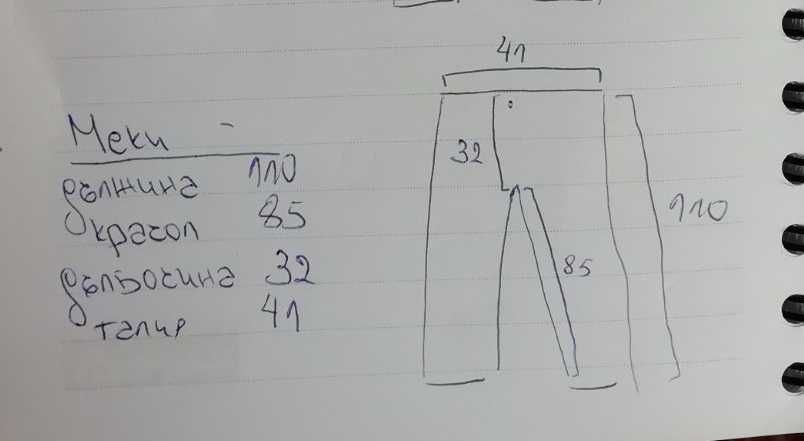 Меки -
дължина 110
крачол 85
дълбочина 32
талия 41
41
32
110
85